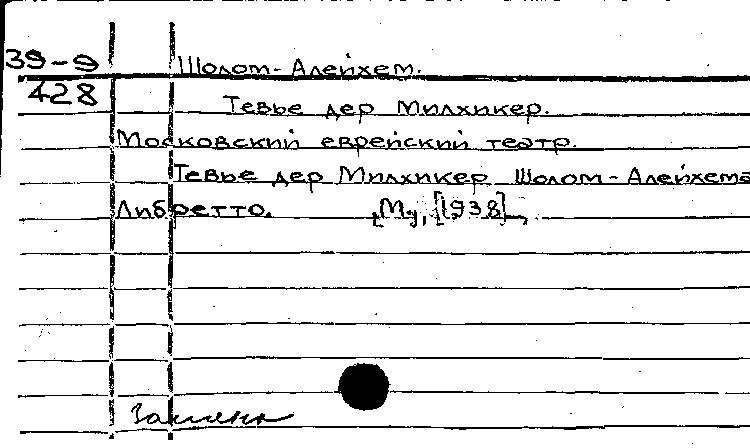 39-9
Шолом-Алейхем.
428
Тевье дер Милхикер.
Московский еврейский театр.
Тевье дер Милхикер Шолом-Алейхема
Либретто. [М], [1938],
Замена